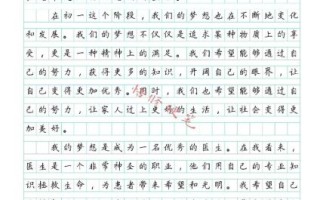 在初一这个阶段，我们的梦想也在不断地变化
和发展。我们的梦想不仅仅是追求某种物质上的享
受，更是一种精神上的满足。我们希望能够通过自
己的努力，获得更多的知识，开阔自己的眼界，让
自己变得更加优秀。同时，我们也希望能够通过自
己的努力，让家人过上更好的生活，让社会变得更
加美好。
我的梦想是成为一名优秀的医生。在我看来，
医生是一个非常神圣的职业，他们用自己的专业知
识拯救生命，为患者带来希望和光明。我希望自己